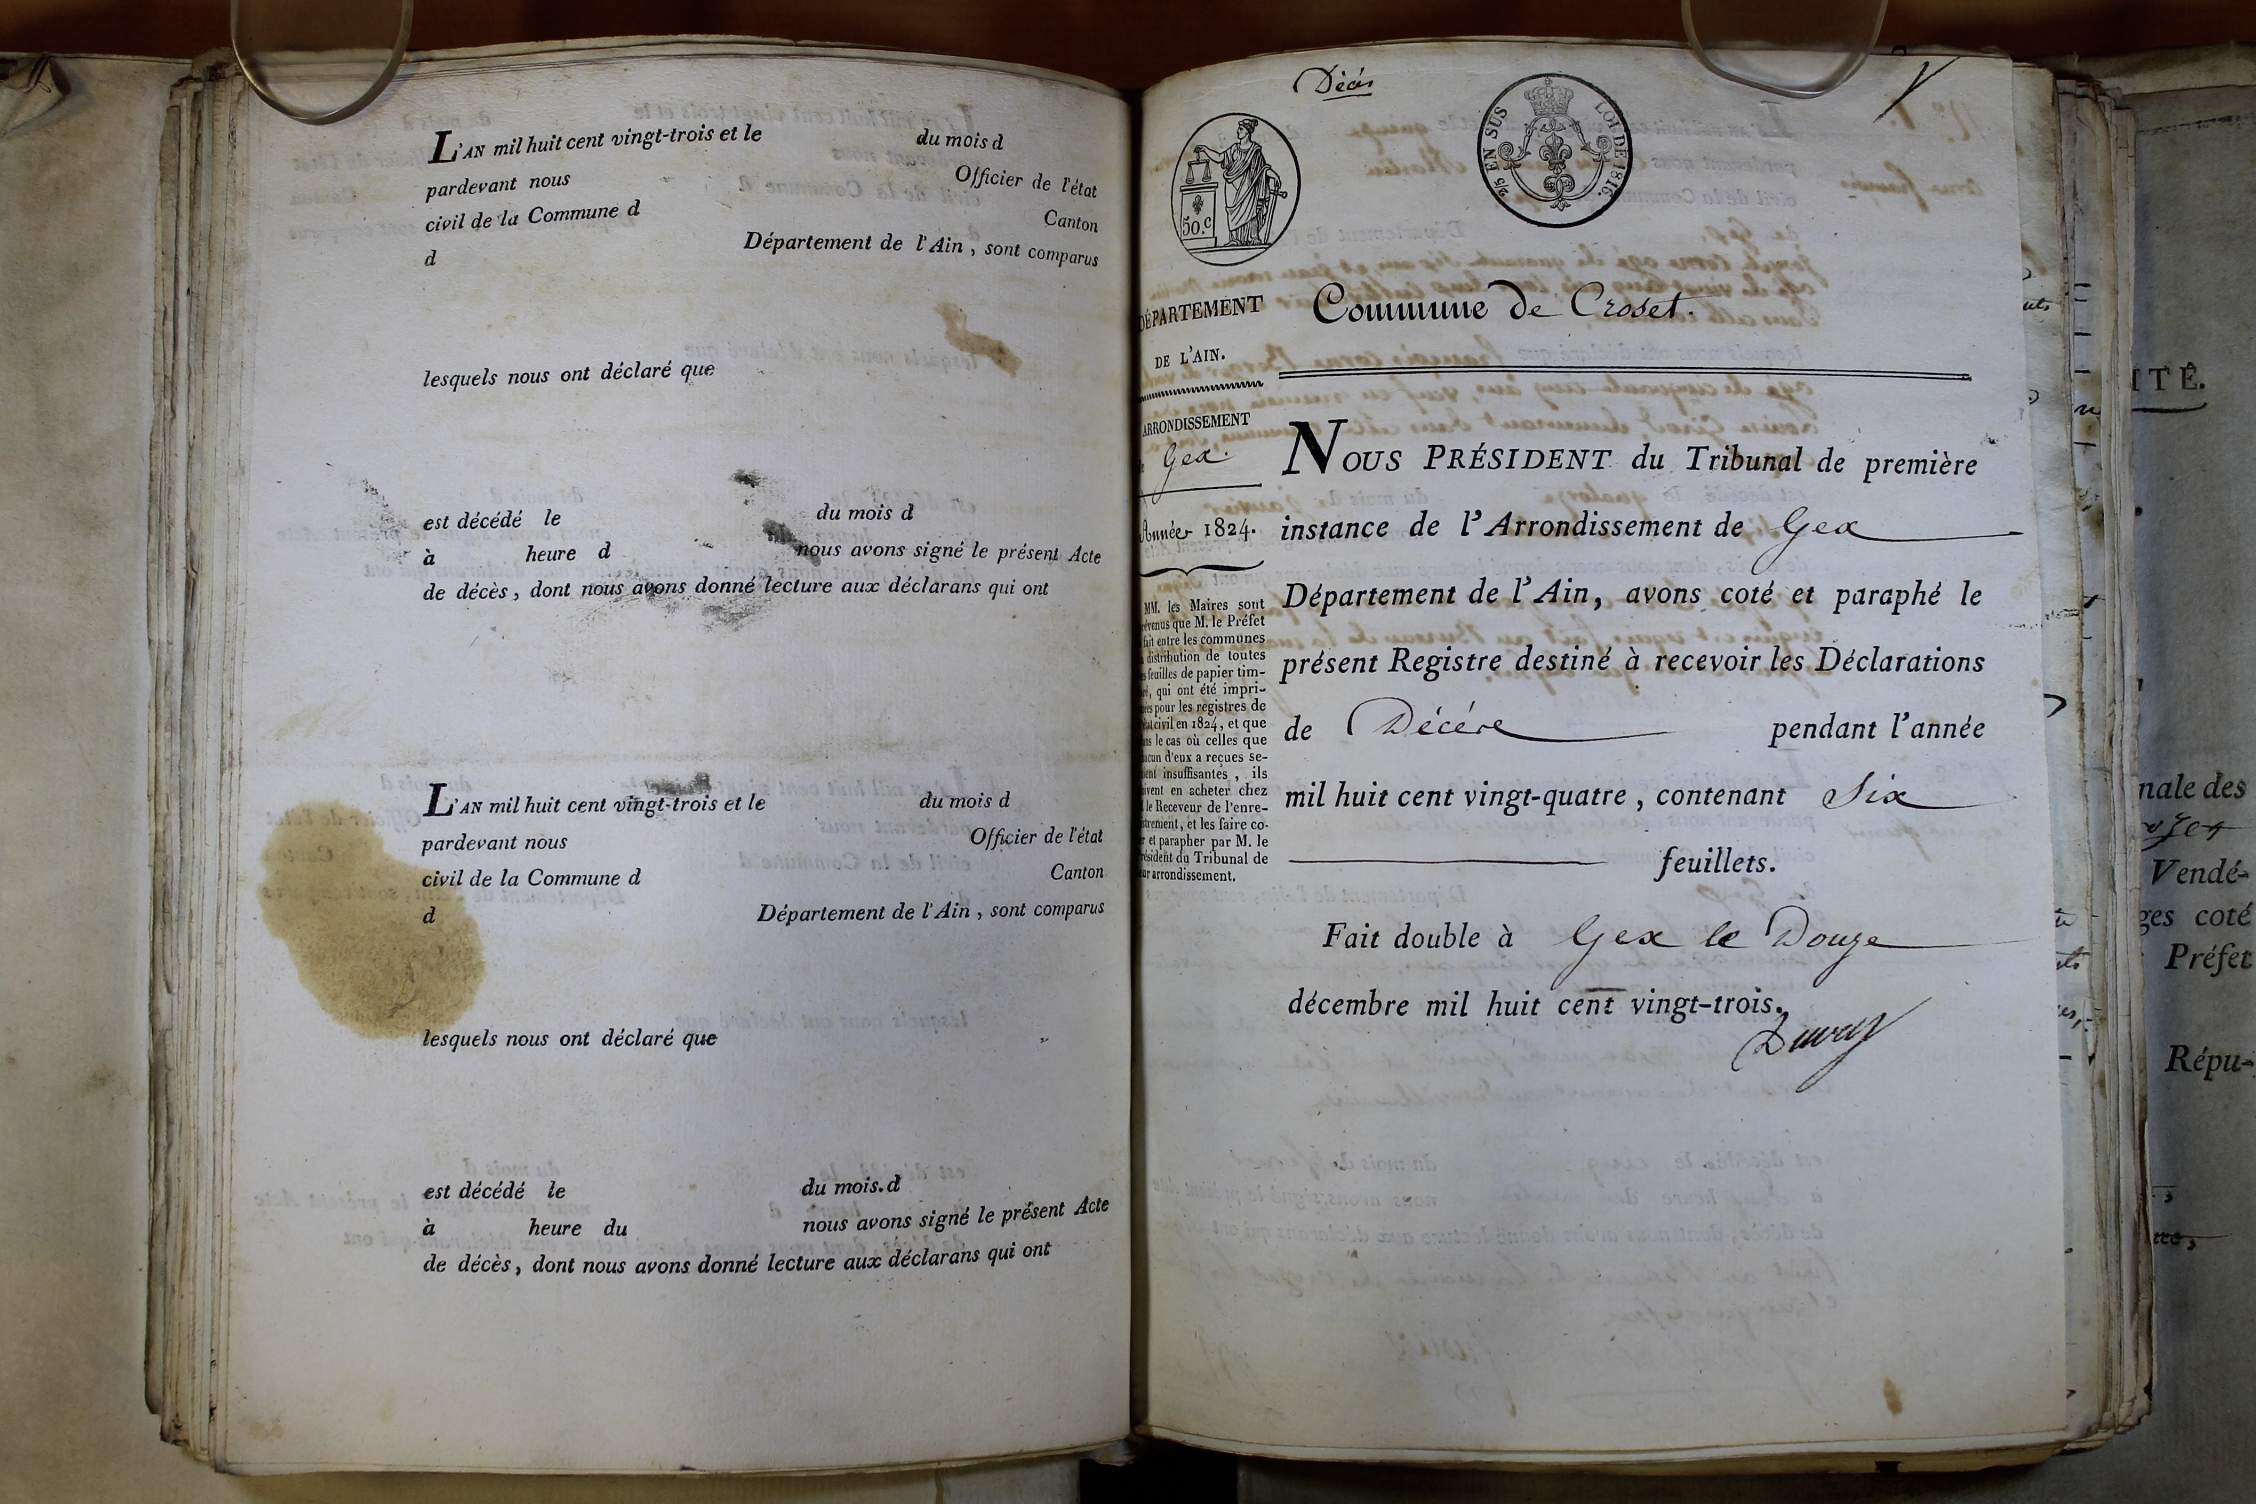 L'AN mil huit cent vingt-trois et le du mois d
pardevant nous Officier de l'état
civil de la Commune d Canton
d Département de l'Ain, sont comparus
lesquels nous ont déclaré que
est décédé le du mois d
à heure d nous avons signé le présent Acte
de décès, dont nous avons donné lecture aux déclarans qui ont
L'AN mil huit cent vingt-trois et le du mois d
pardevant nous Officier de l'état
civil de la Commune d Canton
d Département de l'Ain, sont comparus
lesquels nous ont déclaré que
est décédé le du mois d
à heure du nous avons signé le présent Acte
de décès, dont nous avons donné lecture aux déclarans qui ont
Décès
50.c
2/5 EN SUS LOI DE 1816.
DÉPARTEMENT
DE L'AIN.
ARRONDISSEMENT
Gex.
Année 1824.
MM. les Maires sont
que M. le Préfet
fait entre les communes
distribution de toutes
feuilles de papier tim-
qui ont été impri-
pour les registres de
civil en 1824, et que
le cas où celles que
d'eux a reçues se-
insuffisantes, ils
en acheter chez
le Receveur de l'enre-
et les faire co-
et parapher par M. le
du Tribunal de
arrondissement.
Commune de Croset.
NOUS PRÉSIDENT du Tribunal de première
instance de l'Arrondissement de Gex
Département de l'Ain, avons coté et paraphé le
présent Registre destiné à recevoir les Déclarations
de Décès pendant l'année
mil huit cent vingt-quatre, contenant Six
feuillets.
Fait double à Gex le Douze
décembre mil huit cent vingt-trois.
ITÉ.
nale des
Vendé-
ges coté
Préfet
Répu-